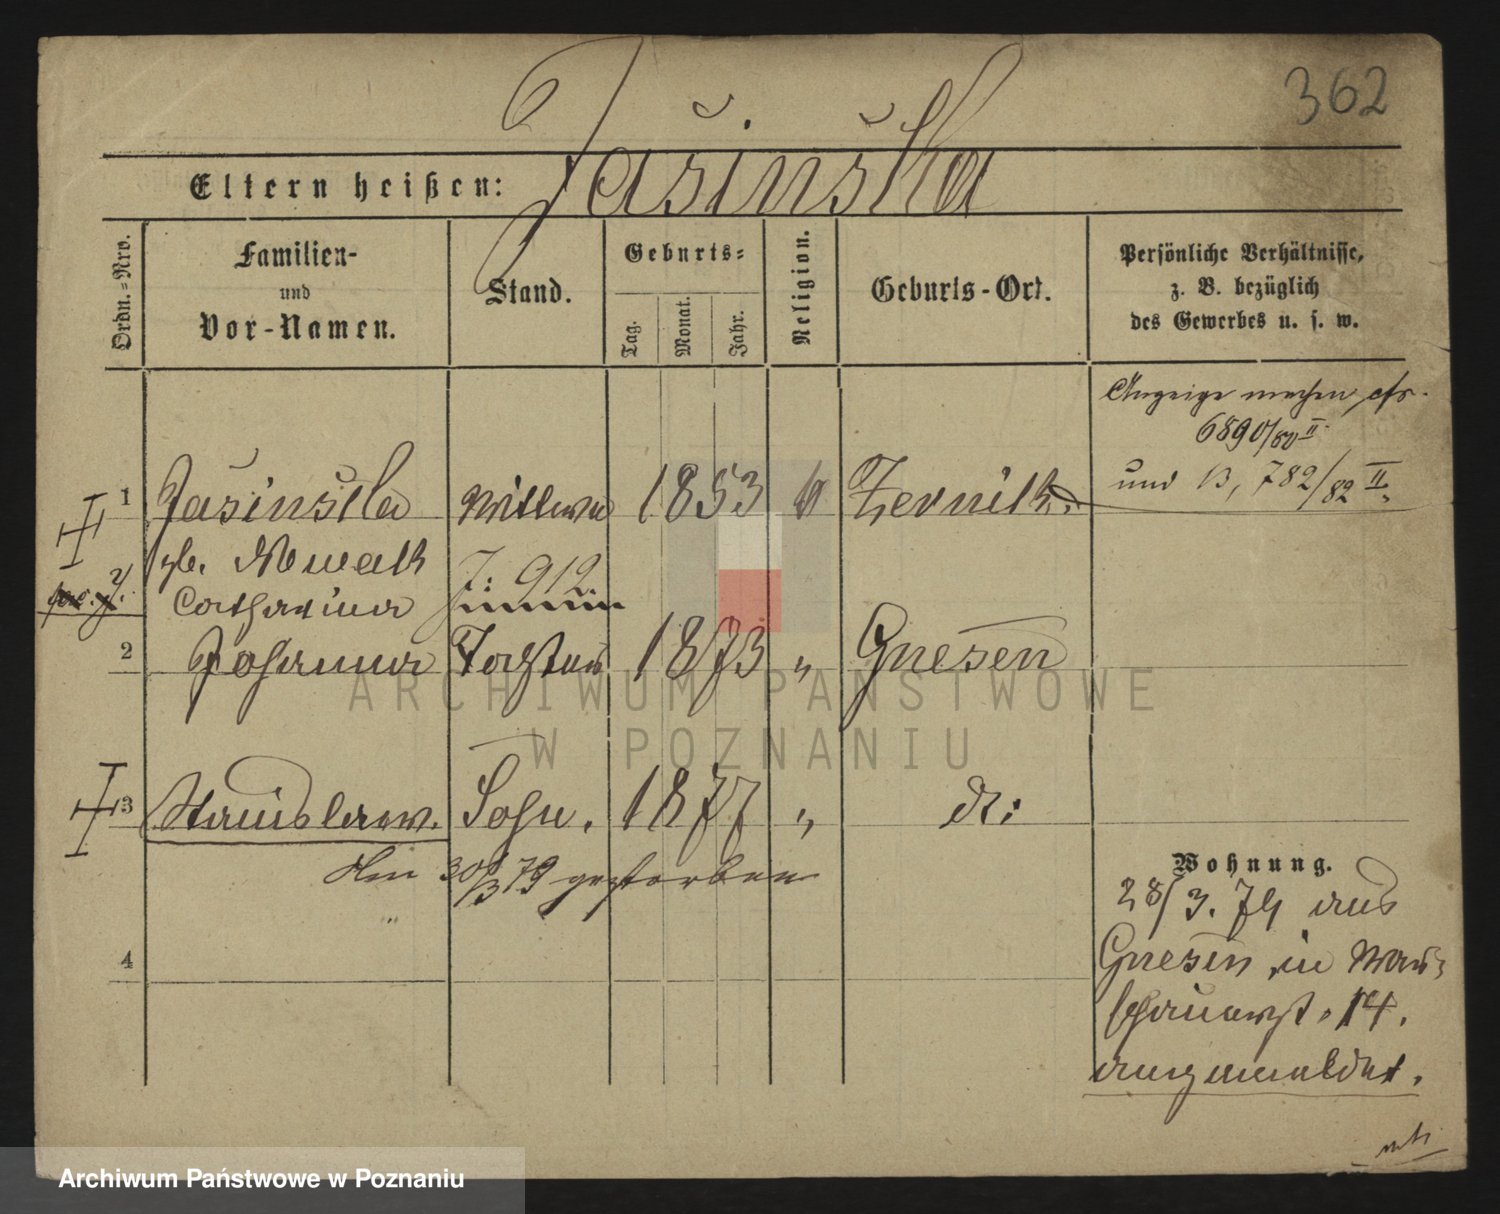 362
Jasinska
Eltern heißen:
Ordn.-Nro.
Familien-
und
Vor-Namen.
Stand.
Geburts-
Tag.
Monat.
Jahr.
Religion.
Geburts-Ort.
Persönliche Verhältnisse,
z. B. bezüglich
des Gewerbes u. s. w.
Anzeige machen cfr.
6890/80 II.
und B, 782/82 II.
1 Jasinska Wittwe 1853 k Zernik
gb. Nowak J: 912
Catharina
2 Johanna Tochter 1873 " Gnesen
ARCHIWUM PAŃSTWOWE
W POZNANIU
3 Stanislaw. Sohn. 1877 " do:
Am 30/3 79 gestorben
4
Wohnung.
28/3. 79 aus
Gnesen in
14.
angemeldet.
Archiwum Państwowe w Poznaniu